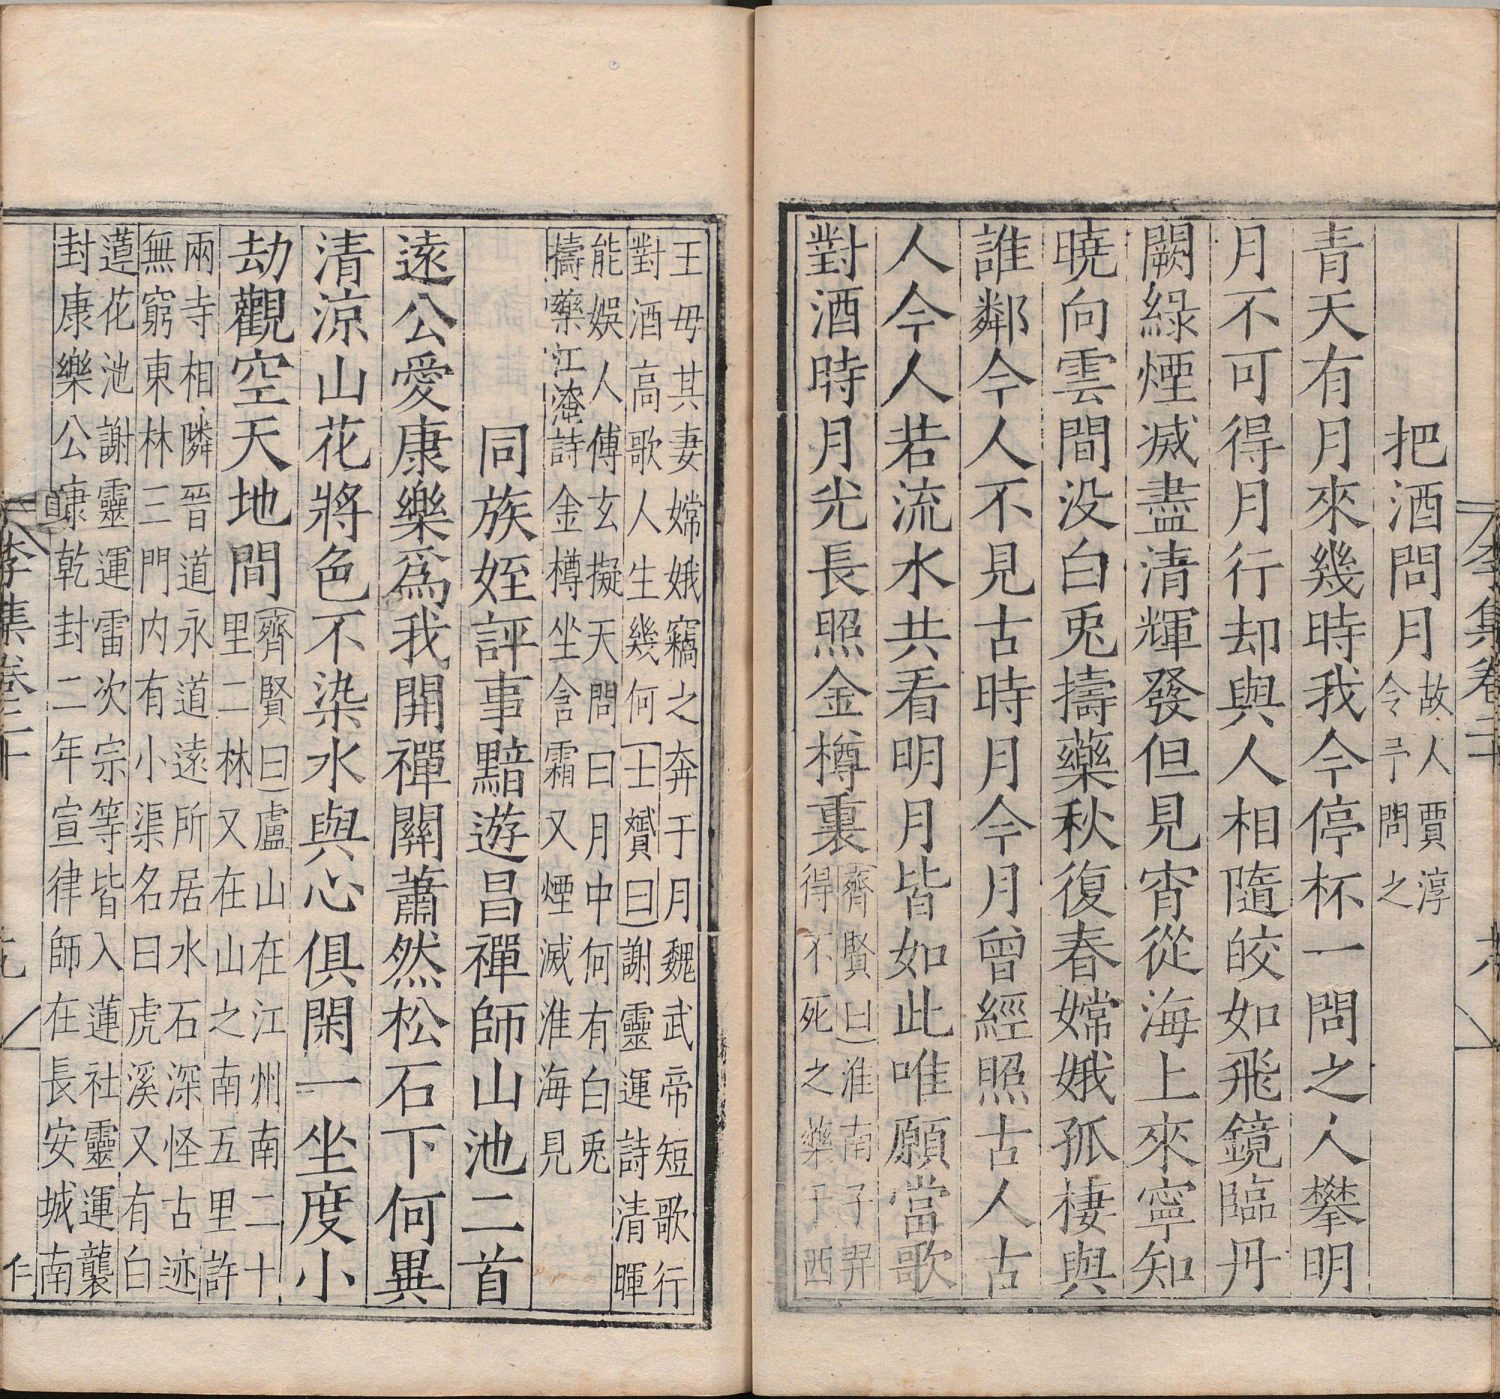 把酒問月
故人賈淳
令予問之
青天有月來幾時我今停杯一問之人攀明
月不可得月行却與人相隨皎如飛鏡臨丹
闕綠煙滅盡清輝發但見宵從海上來寧知
曉向雲間没白兎擣藥秋復春嫦娥孤棲與
誰鄰今人不見古時月今月曾經照古人古
人今人若流水共看明月皆如此唯願當歌
對酒時月光長照金樽裏
齊賢曰淮南子羿
得不死之藥于西
王母其妻嫦娥竊之奔于月魏武帝短歌行
對酒高歌人生幾何士贇曰謝靈運詩清暉
能娛人傅玄擬天問曰月中何有白兎
擣藥江淹詩金樽坐含霜又煙滅淮海見
同族姪評事黯遊昌禪師山池二首
遠公愛康樂爲我開禪關蕭然松石下何異
清涼山花將色不染水與心俱閑一坐度小
劫觀空天地間
齊賢曰廬山在江州南二十
里二林又在山之南五里許
兩寺相隣晉道永道遠所居水石深怪古迹
無窮東林三門内有小渠名曰虎溪又有白
蓮花池謝靈運雷次宗等皆入蓮社靈運襲
封康樂公康乾封二年宣律師在長安城南
李集卷二十
仁